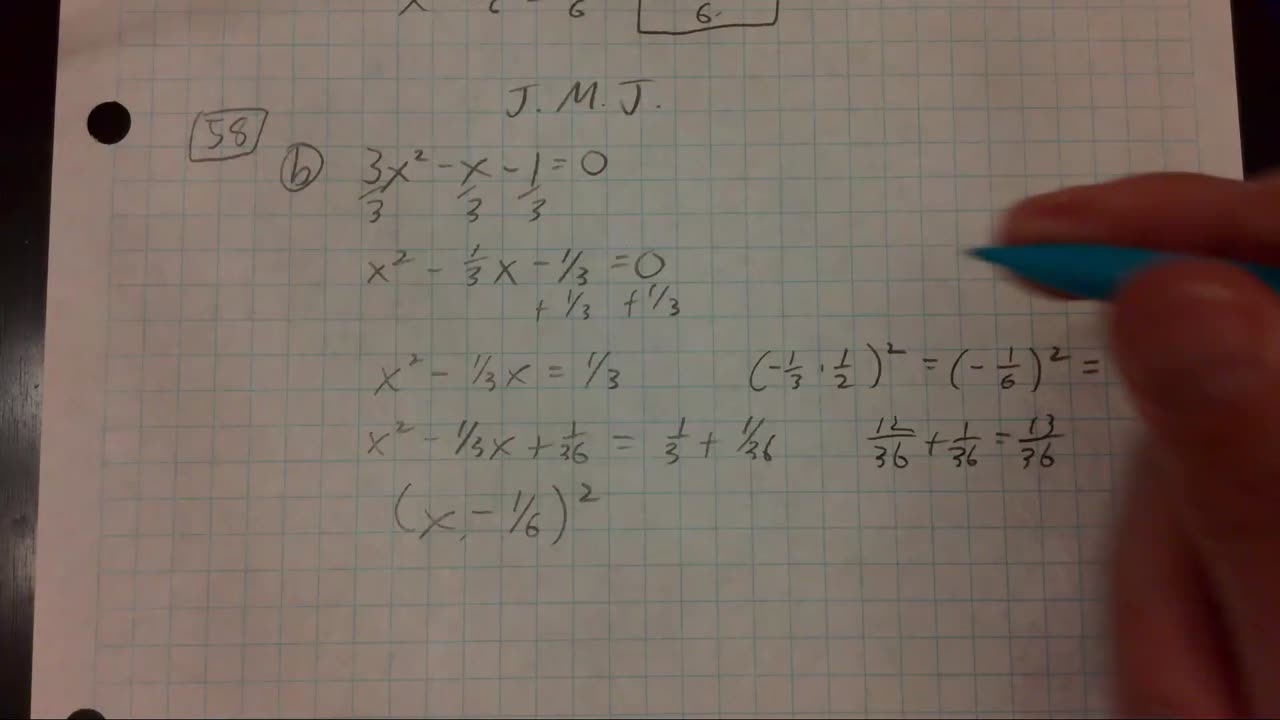 6 6.
J. M. J.
58
b 3x² - x - 1 = 0
/3 /3 /3
x² - 1/3 x - 1/3 = 0
+ 1/3 + 1/3
x² - 1/3x = 1/3 (-1/3 · 1/2)² = (-1/6)² =
x² - 1/3x + 1/36 = 1/3 + 1/36 12/36 + 1/36 = 13/36
(x - 1/6)²